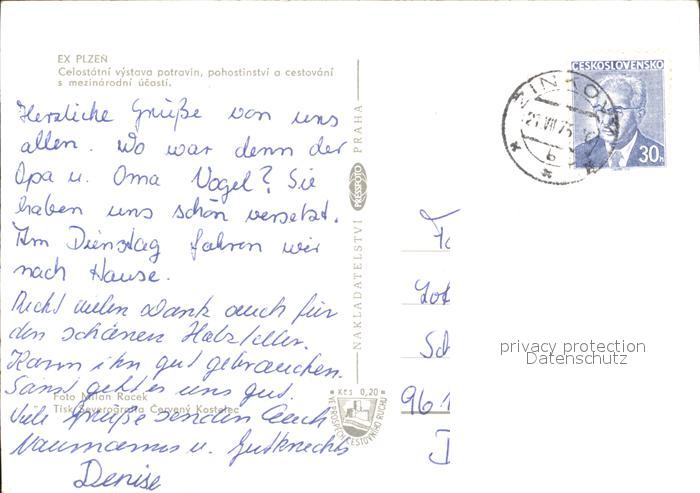 EX PLZEŇ
Celostátní výstava potravin, pohostinství a cestování
s mezinárodní účastí.
Herzliche Grüße von uns
allen. Wo war denn der
Opa u. Oma Vogel? Sie
haben uns schön versetzt.
Am Dienstag fahren wir
nach Hause.
Recht vielen Dank auch für
den schönen Holzteller.
Kann ihn gut gebrauchen.
Sonst geht es uns gut.
Foto Milan Racek
Tisk Severografia Červený Kostelec
Viele Grüße senden Euch
Naumanns u. Gutknechts
Denise
NAKLADATELSTVÍ PRESSFOTO PRAHA
Kčs 0,20
VE PROSPĚCH CESTOVNÍHO RUCHU
ČESKOSLOVENSKO
30h
21.VII.75
b
Lot
Sch
961
privacy protection
Datenschutz